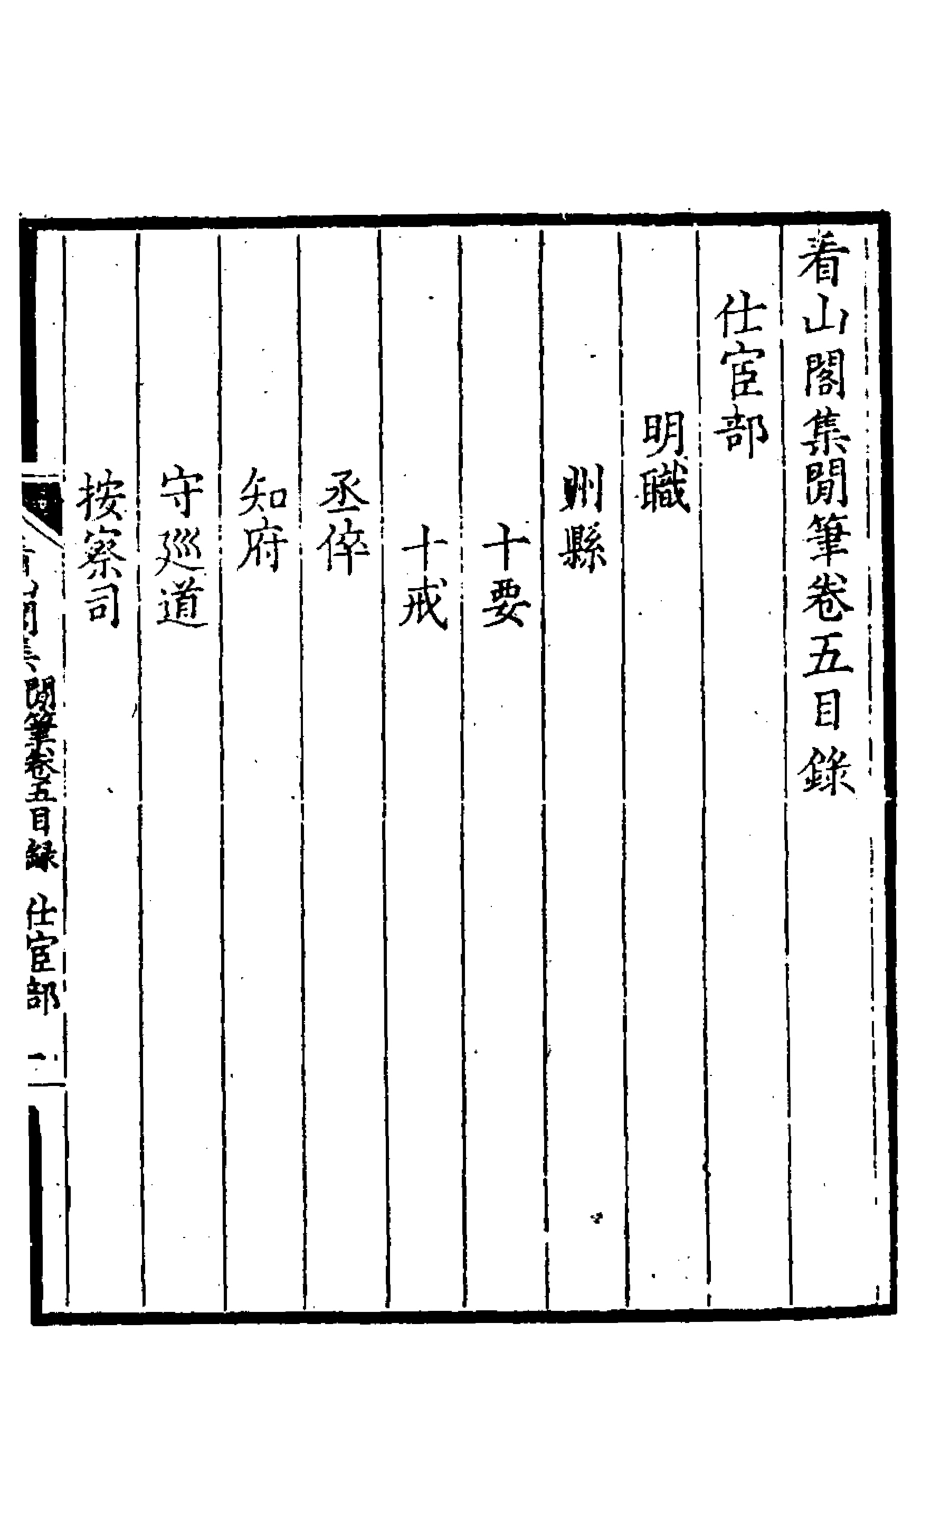 看山閣集閒筆卷五目錄
仕宦部
明職
州縣
十要
十戒
丞倅
知府
守廵道
按察司
看山閣集閒筆卷五目録 仕宦部 一